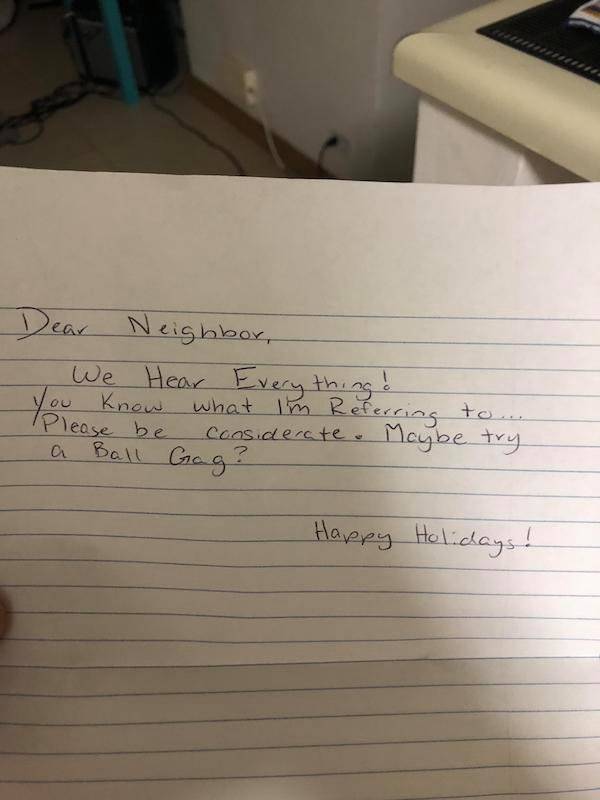 Dear Neighbor,
We Hear Everything!
You Know what I'm Referring to...
Please be considerate. Maybe try
a Ball Gag?
Happy Holidays!